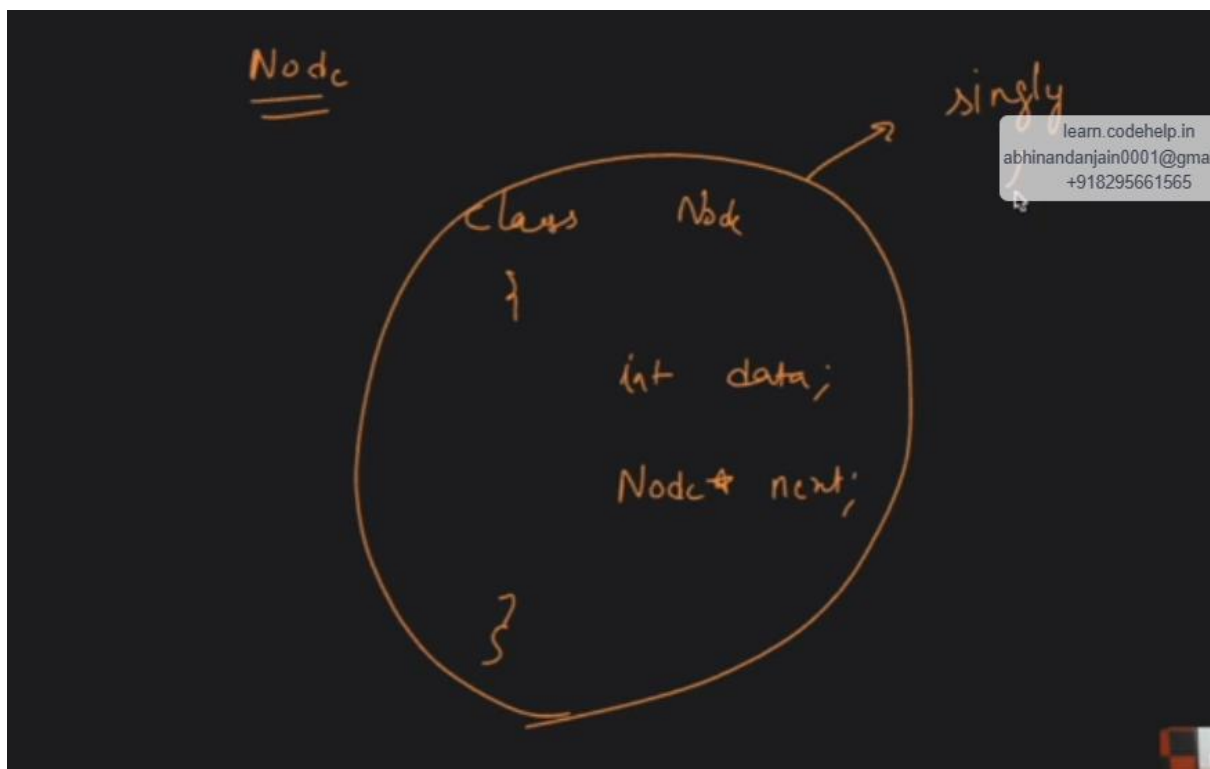 Node
singly
learn.codehelp.in
abhinandanjain0001@gma
+918295661565
class Node
{
int data;
Node* next;
}